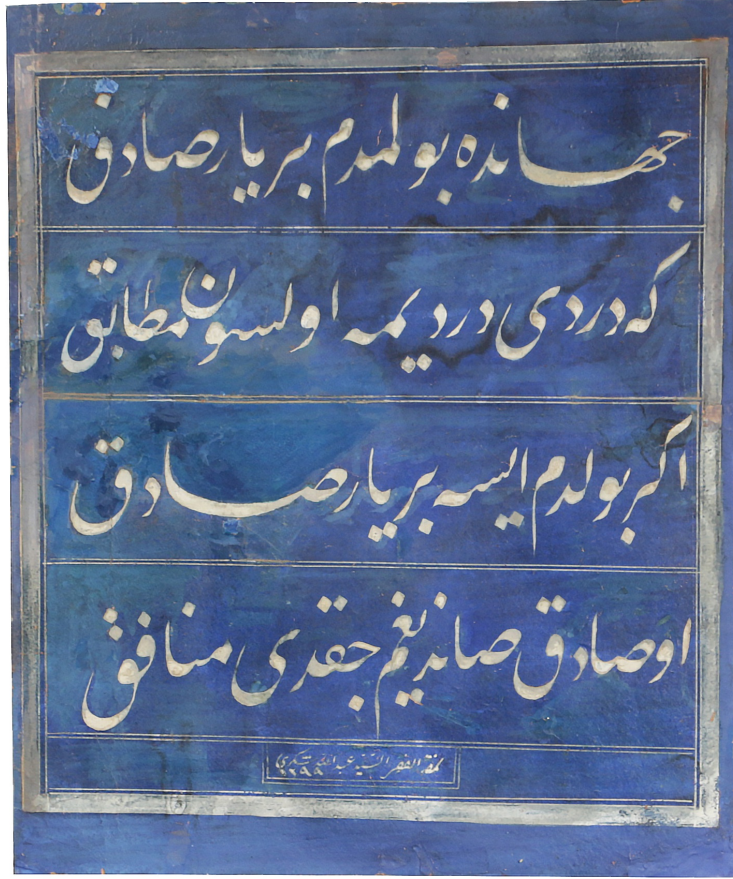 جهانده بولمدم بر يار صادق
كه دردی درديمه اولسون مطابق
اكر بولدم ايسه بر يار صادق
او صادق صانديغم چقدی منافق
نمقه الفقير السيد عبدالله